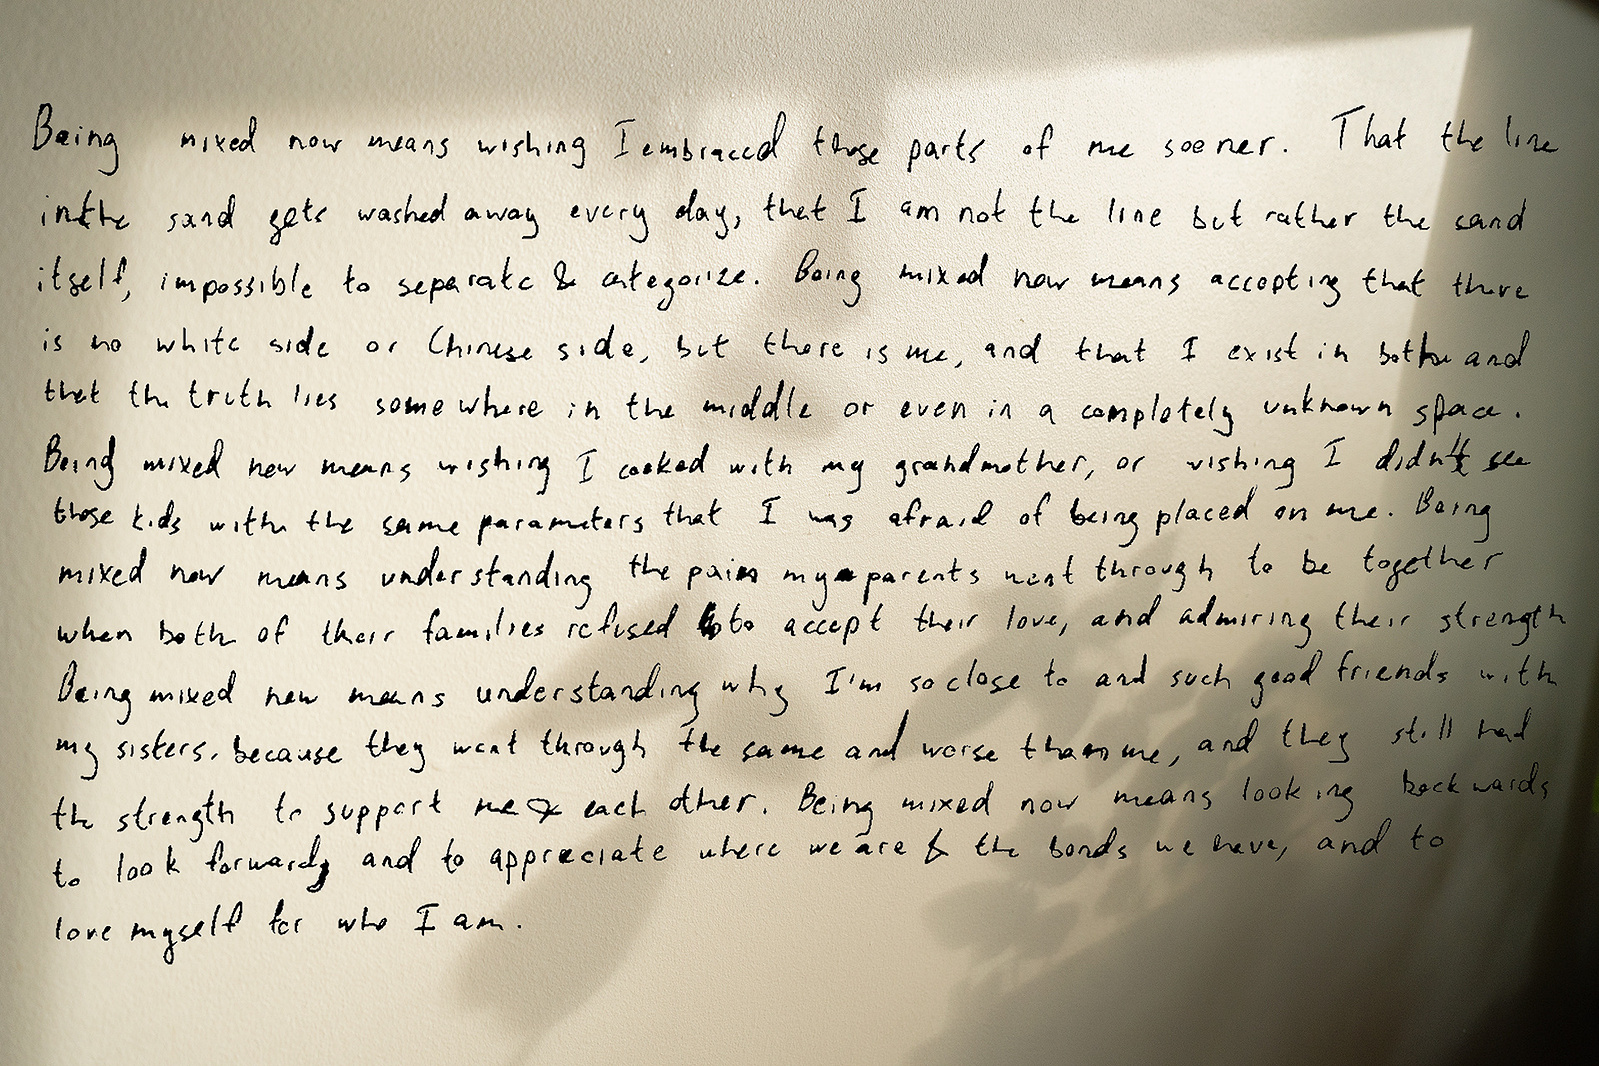 Being mixed now means wishing I embraced those parts of me sooner. That the line
in the sand gets washed away every day, that I am not the line but rather the sand
itself, impossible to separate & categorize. Being mixed now means accepting that there
is no white side or Chinese side, but there is me, and that I exist in both and
that the truth lies somewhere in the middle or even in a completely unknown space.
Being mixed now means wishing I cooked with my grandmother, or wishing I didn't see
those kids with the same parameters that I was afraid of being placed on me. Being
mixed now means understanding the pain my parents went through to be together
when both of their families refused to accept their love, and admiring their strength
Being mixed now means understanding why I'm so close to and such good friends with
my sisters, because they went through the same and worse than me, and they still had
the strength to support me & each other. Being mixed now means looking backwards
to look forward, and to appreciate where we are & the bonds we have, and to
love myself for who I am.